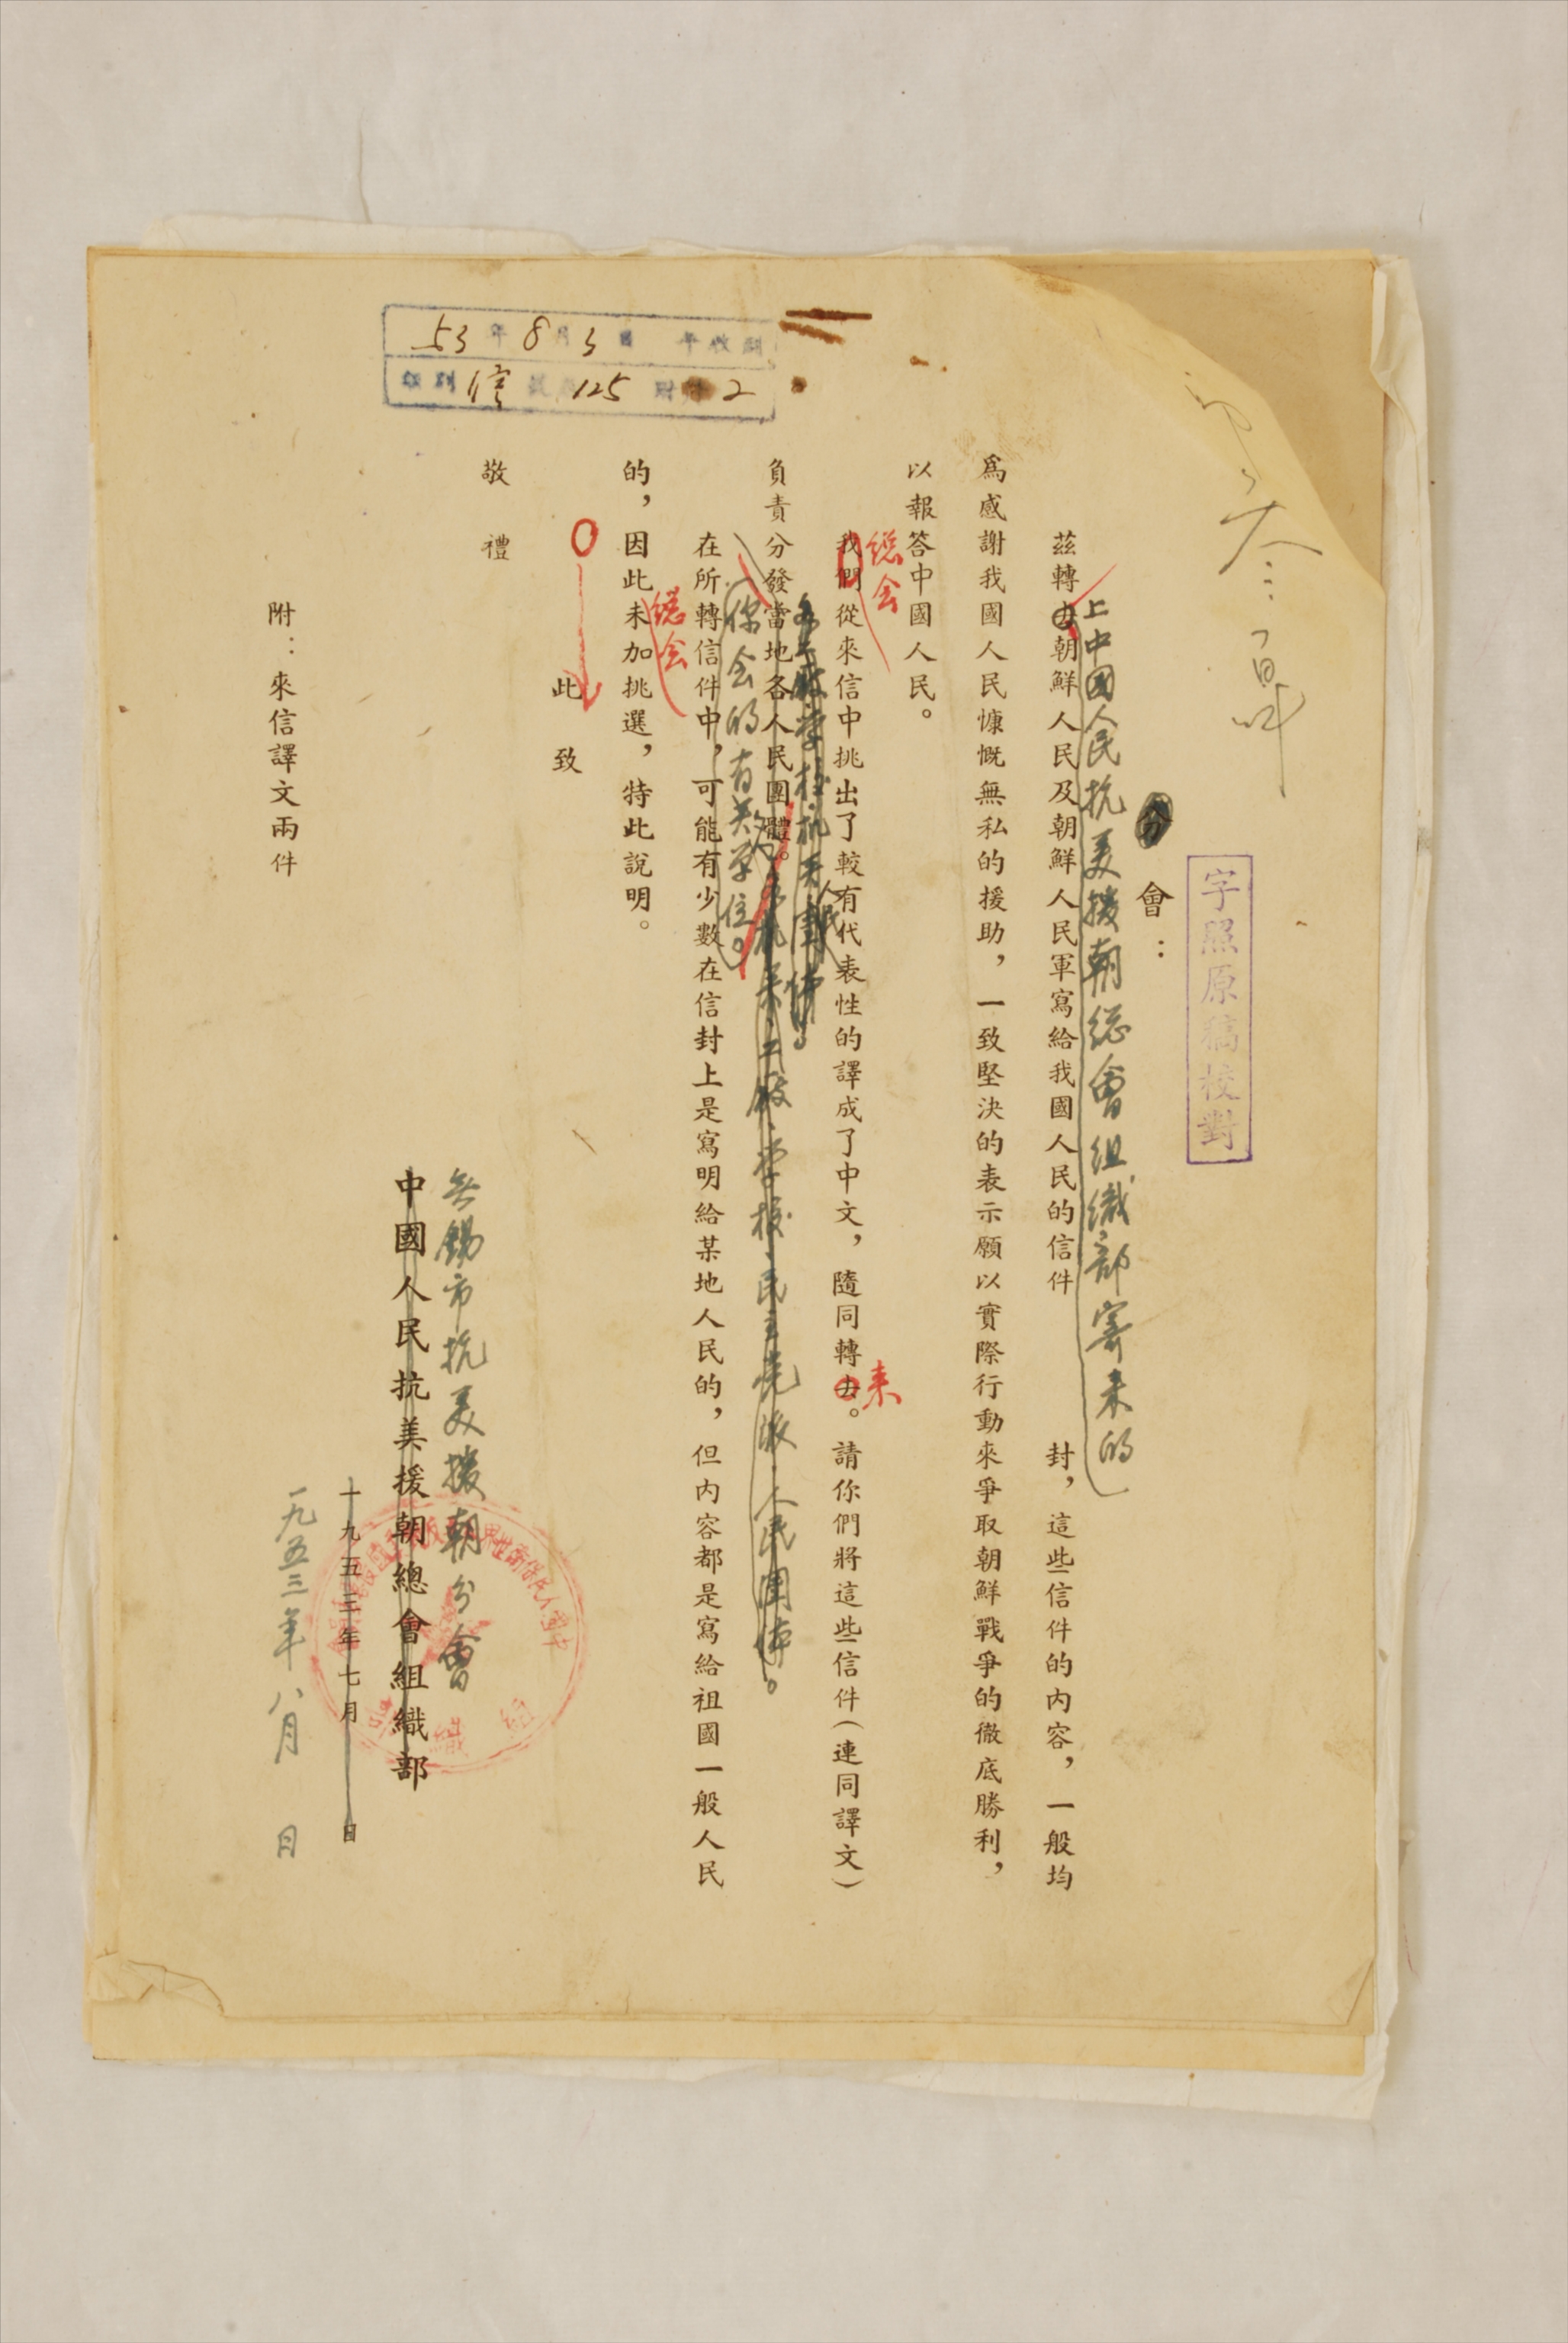 53年8月3日 午收到
組別 信 號 125 附件 2
字照原稿校對
分會：
上中國人民抗美援朝總會組織部寄来的
茲轉去朝鮮人民及朝鮮人民軍寫給我國人民的信件 封，這些信件的內容，一般均
為感謝我國人民慷慨無私的援助，一致堅決的表示願以實際行動來爭取朝鮮戰爭的徹底勝利，
以報答中國人民。
總会
我們從來信中挑出了較有代表性的譯成了中文，隨同轉去。請你們將這些信件（連同譯文）
来
人民
負責分發當地各人民團體。
工厰、学校、民主党派、人民團体。
你会的有关单位。
在所轉信件中，可能有少數在信封上是寫明給某地人民的，但內容都是寫給祖國一般人民
總会
的，因此未加挑選，特此說明。
此 致
敬 禮
無錫市抗美援朝分會
中國人民抗美援朝總會組織部
一九五三年七月 日
一九五三年八月 日
附：來信譯文兩件